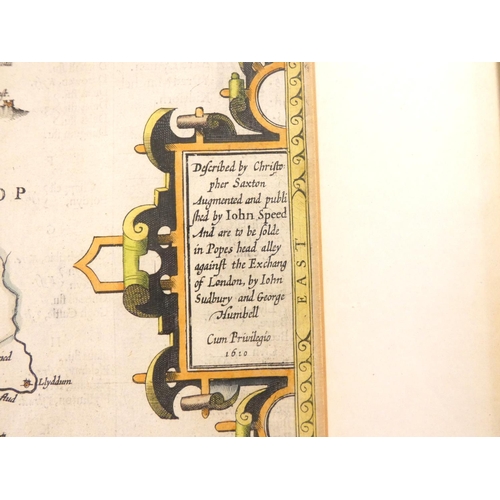 Described by Christo
pher Saxton
Augmented and publi
shed by Iohn Speed
And are to be solde
in Popes head alley
against the Exchang
of London, by Iohn
Sudbury and George
Humbell
Cum Privilegio
1610
EAST
O P
Llyddum